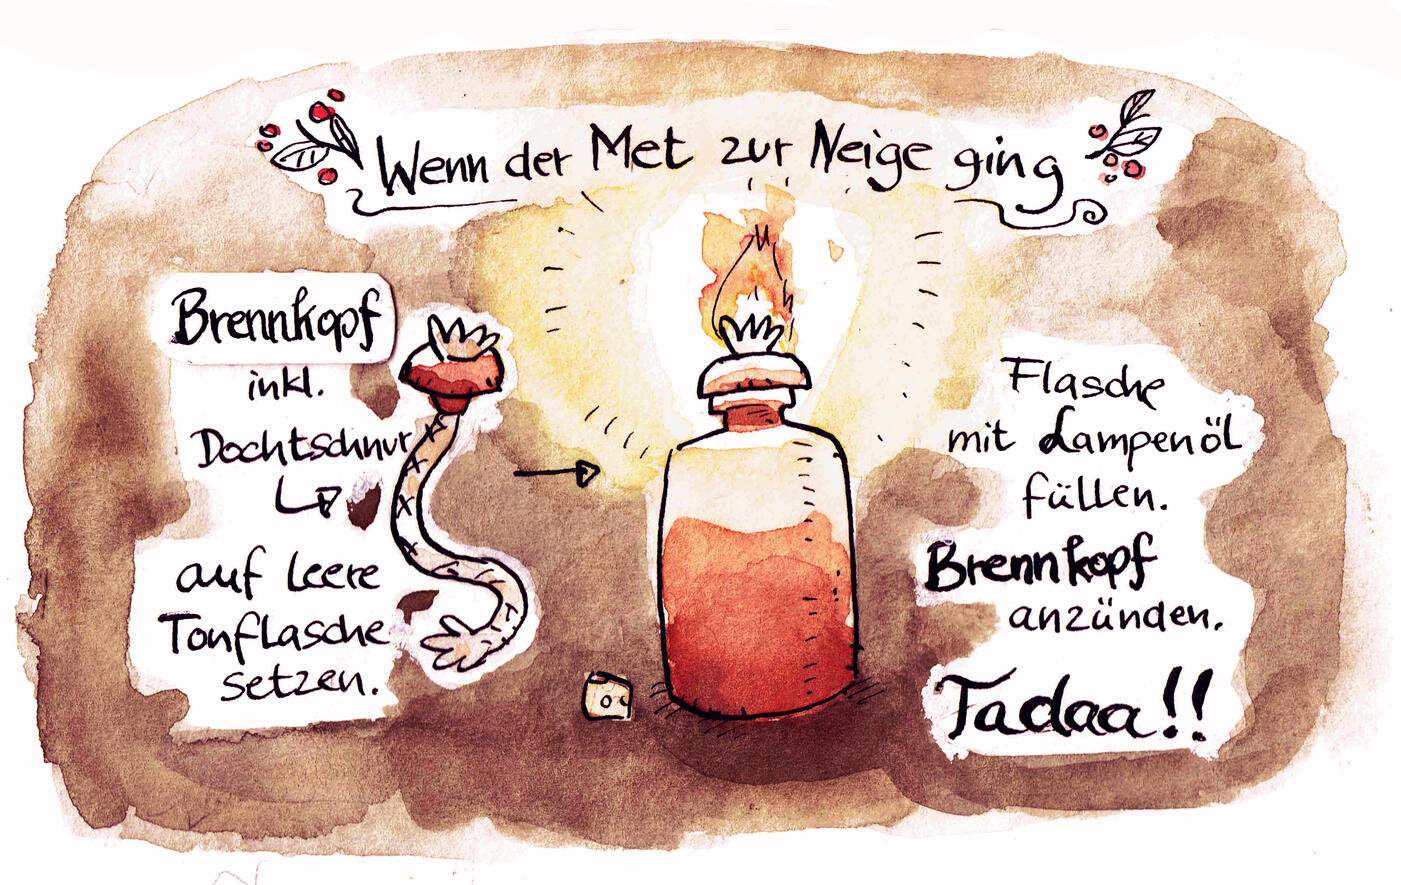 Wenn der Met zur Neige ging
Brennkopf
inkl.
Dochtschnur
auf leere
Tonflasche
setzen.
Flasche
mit Lampenöl
füllen.
Brennkopf
anzünden.
Tadaa!!